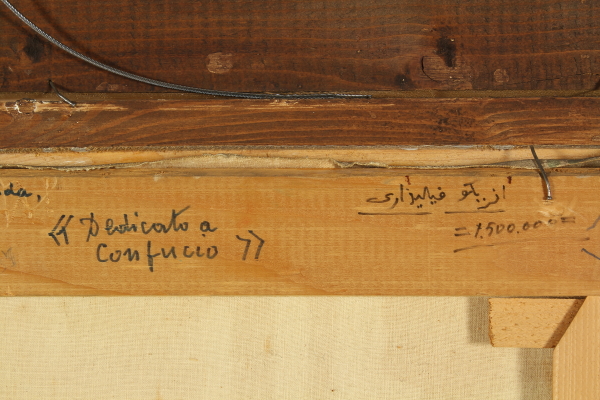 da,
« Dedicato a
Confucio »
انریکو فیلیذاری
= 1.500.000 =